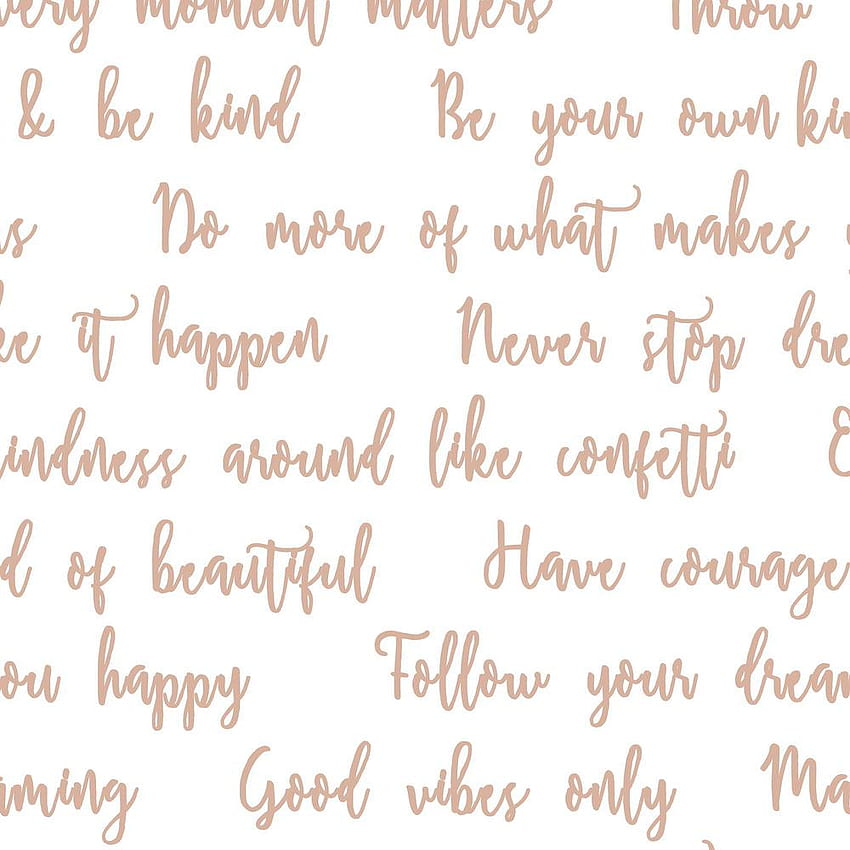 very moment matters Throw
& be kind Be your own kin
ns Do more of what makes y
ke it happen Never stop dre
indness around like confetti E
d of beautiful Have courage
ou happy Follow your dream
aming Good vibes only Ma